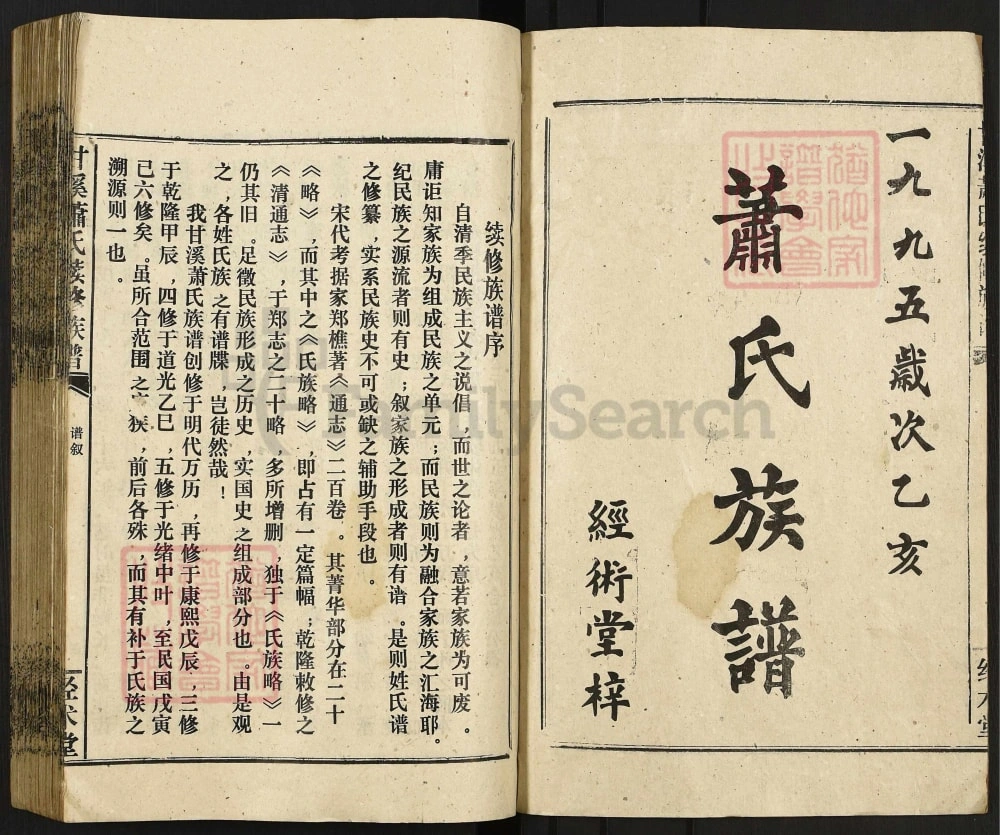 一九九五歲次乙亥
蕭氏族譜
經術堂梓
续修族谱序
自清季民族主义之说倡,而世之论者,意若家族为可废。
庸讵知家族为组成民族之单元;而民族则为融合家族之汇海耶。
纪民族之源流者则有史;叙家族之形成者则有谱。是则姓氏谱
之修纂,实系民族史不可或缺之辅助手段也。
宋代考据家郑樵著《通志》二百卷。其菁华部分在二十
《略》,而其中之《氏族略》,即占有一定篇幅;乾隆敕修之
《清通志》,于郑志之二十略,多所增删,独于《氏族略》一
仍其旧。足徵民族形成之历史,实国史之组成部分也。由是观
之,各姓氏族之有谱牒,岂徒然哉!
我甘溪萧氏族谱创修于明代万历,再修于康熙戊辰,三修
于乾隆甲辰,四修于道光乙巳,五修于光绪中叶,至民国戊寅
已六修矣。虽所合范围之 狭,前后各殊,而其有补于氏族之
溯源则一也。
甘溪蕭氏续修族譜
谱叙
经术堂
FamilySearch